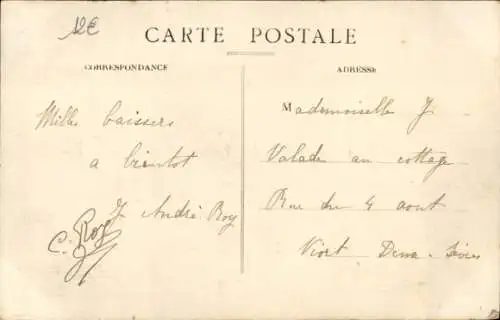 12€
CARTE POSTALE
CORRESPONDANCE
ADRESSE
Mille baisers
a bientot
J André Roy
C. Roy
Mademoiselle J
Valade au cottage
Rue du 4 aout
Niort Deux-Sèvres